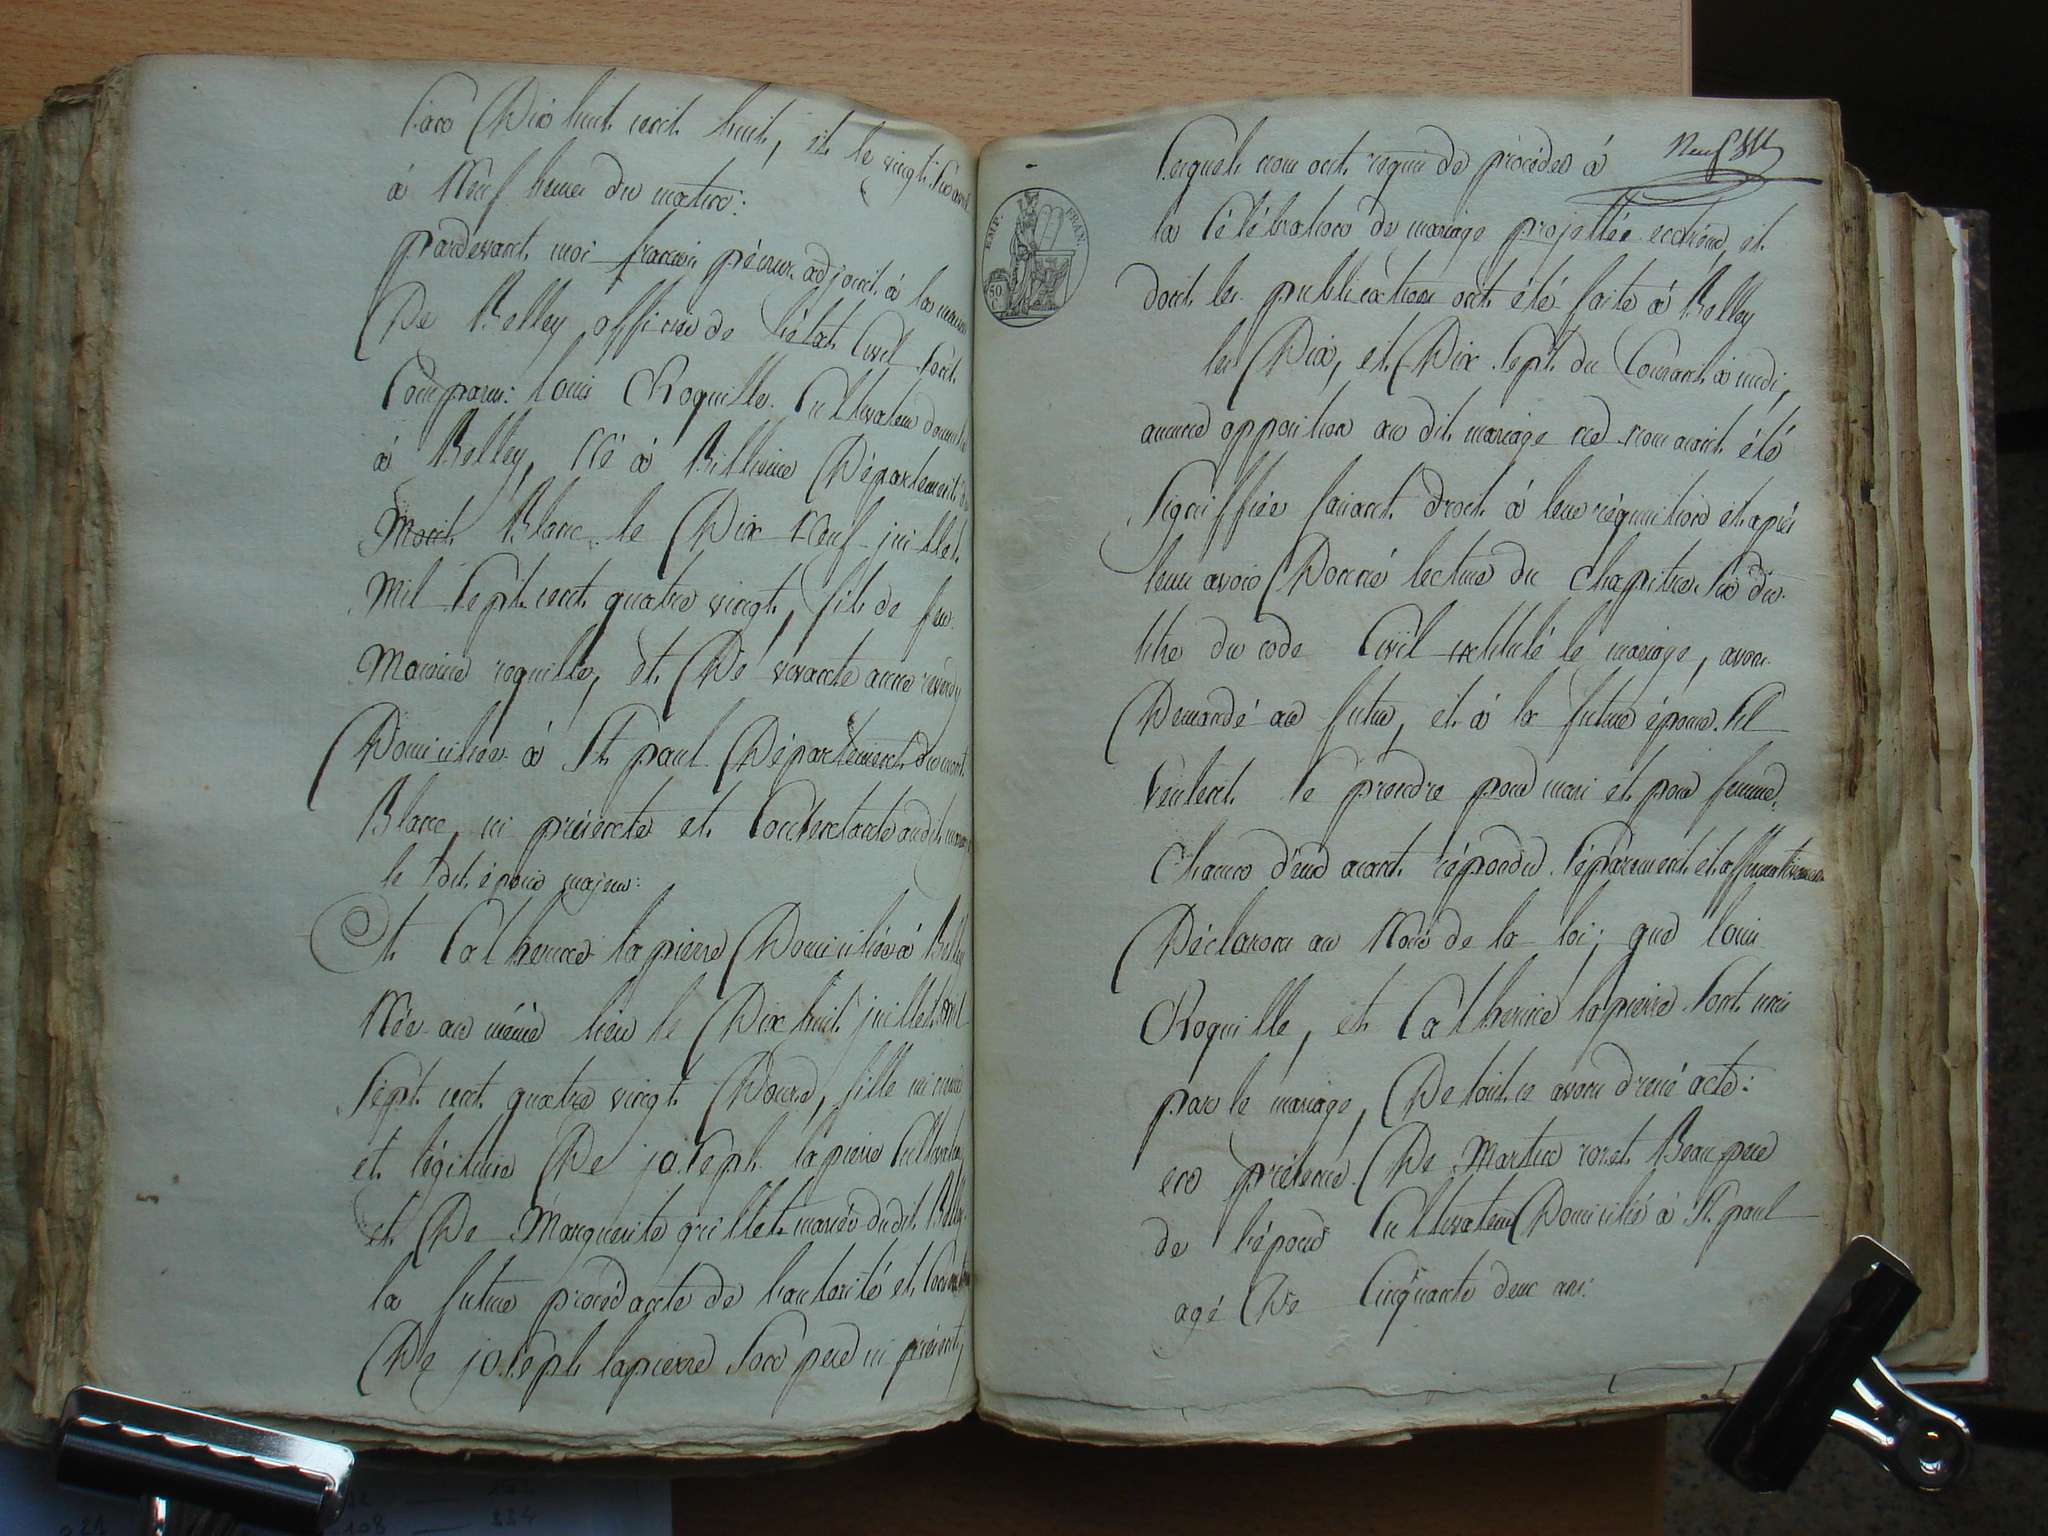 L'an Dix huit cent huit, et le vingt six avril
à Neuf heures du matin:
pardevant moi francois adjoint à la mairie
De Belley officier de l'état Civil sont
Comparus: louis Roquille Cultivateur domicilié
à Belley, Né à Département du
Mont Blanc le Dix Neuf juillet
Mil Sept cent quatre vingt, fils de feu
roquille, et De vivante anne
Domiciliée à St paul Département du mont
Blanc, ici présente et Consentante audit mariage
le dit époux majeur:
Et Catherine lapierre Domiciliée à Belley
Née au même lieu le Dix huit juillet mil
Sept cent quatre vingt Douze, fille mineure
et légitime De joseph lapierre Cultivateur
et De Marguerite guillet mariés dudit Belley
la future procédante de l'autorité et Consentement
De joseph lapierre Son pere ici présent,
Neuf
Lesquels nous ont requis de procéder à
la Célébration du mariage projettée entr'eux, et
dont les publications ont été faite à Belley
les Dix, et Dix Sept du Courant à midi,
aucune opposition au dit mariage ne nous aiant été
Signiffiée faisant droit à leur réquisition et après
leur avoir Donné lecture du chapitre Six du
titre du code Civil intitulé le mariage, avons
Demandé au futur, et à la future épouse s'il
veulent se prendre pour mari et pour femme,
Chacun d'eux aiant répondu séparément et affirmativement
Déclarons au Nom de la loi, que louis
Roquille, et Catherine lapierre Sont unis
par le mariage, De tout ce avons dressé acte:
en présence De Martin Beau pere
de l'époux Cultivateur Domicilié à St paul
agé De Cinquante deux ans:
EMP. FRAN.
50
C.